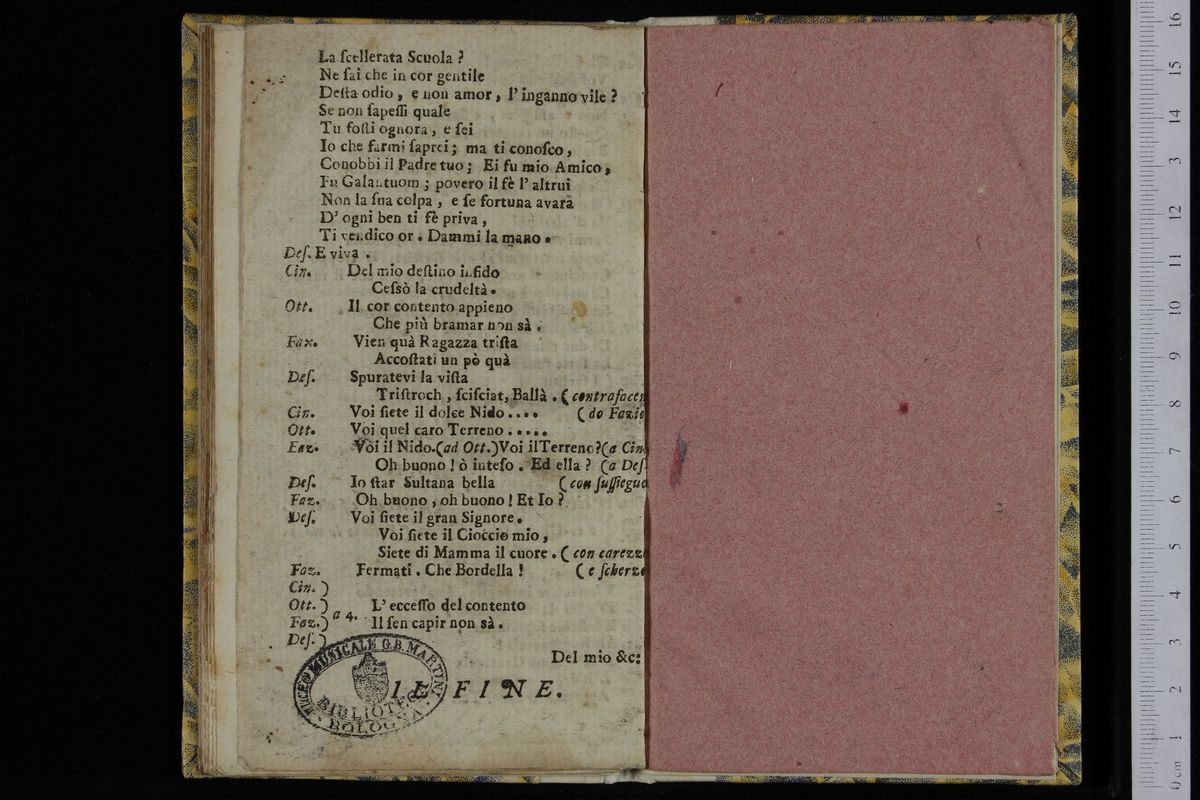 La ſcellerata Scuola ?
Ne ſai che in cor gentile
Deſta odio , e non amor , l' inganno vile ?
Se non ſapeſſi quale
Tu foſti ognora , e ſei
Io che farmi ſaprei ; ma ti conoſco ,
Conobbi il Padre tuo ; Ei fu mio Amico ,
Fu Galantuom ; povero il fè l' altrui
Non la ſua colpa , e ſe fortuna avara
D' ogni ben ti fè priva ,
Ti vendico or . Dammi la mano .
Deſ. E viva .
Cin. Del mio deſtino infido
Ceſsò la crudeltà .
Ott. Il cor contento appieno
Che più bramar non sà .
Faz. Vien quà Ragazza triſta
Accoſtati un pò quà
Deſ. Spuratevi la viſta
Triſtroch , ſciſciat, Ballà . ( contrafacen
Cin. Voi ſiete il dolce Nido .... ( do Fazio
Ott. Voi quel caro Terreno .....
Faz. Voi il Nido.(ad Ott.) Voi il Terreno?(a Cin
Oh buono ! ò inteſo . Ed ella ? (a Deſ
Deſ. Io ſtar Sultana bella ( con ſuſſiegue
Faz. Oh buono , oh buono ! Et Io ?
Deſ. Voi ſiete il gran Signore .
Voi ſiete il Cioccio mio ,
Siete di Mamma il cuore . ( con carezze
Faz. Fermati . Che Bordella ! ( e ſcherzo
Cin. )
Ott. ) L' ecceſſo del contento
Faz. ) a 4. Il ſen capir non sà .
Deſ. )
Del mio &c:
IL FINE.
LICEO MUSICALE G.B. MARTINI
BIBLIOTECA
BOLOGNA